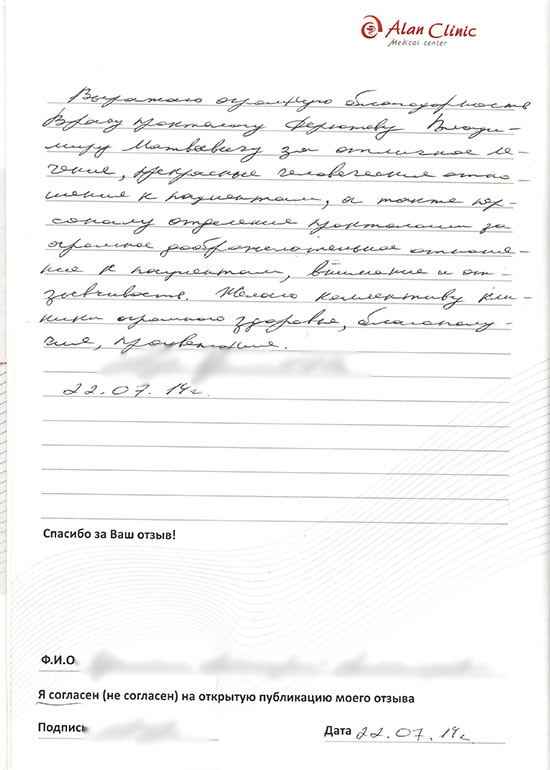 Alan Clinic
Medical center
Выражаю огромную благодарность
Врачу проктологу Ферютеву Влади-
миру Матвеевичу за отличное ле-
чение, прекрасные человеческие отно-
шения к пациентам, а также пер-
соналу отделения проктологии за
огромное доброжелательное отноше-
ние к пациентам, внимание и от-
зывчивость. Желаю коллективу кли-
ники огромного здоровья, благополу-
чия, процветания.
22.07.14г.
Спасибо за Ваш отзыв!
Ф.И.О
Я согласен (не согласен) на открытую публикацию моего отзыва
Подпись
Дата 22.07.14г.